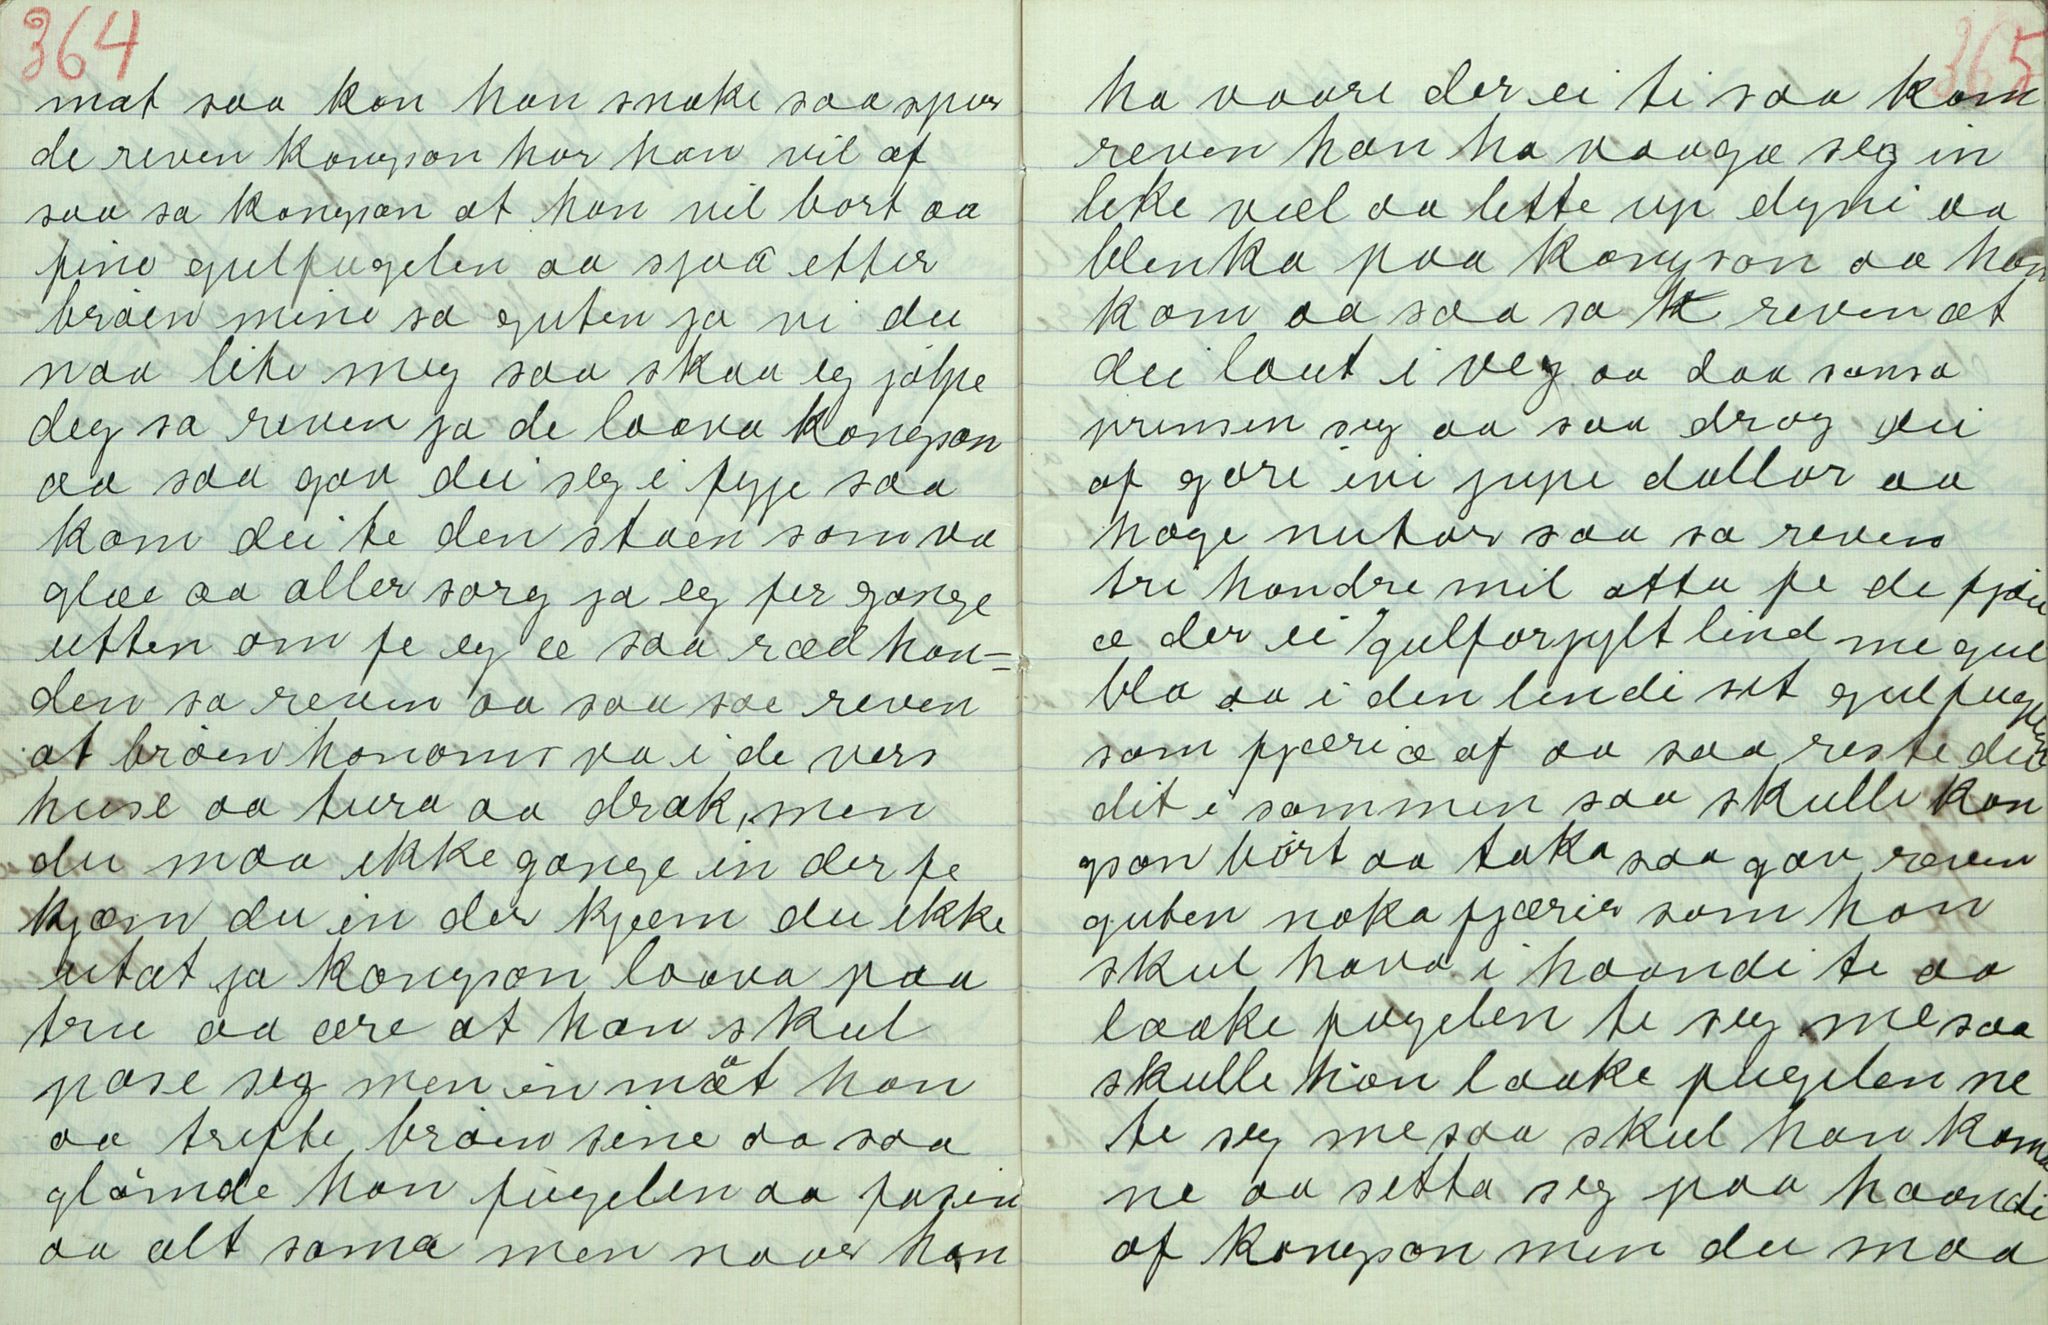 364
mat saa kan han snake saa spur
de reven kongson hor han vil af
saa sa kongson at han vil bort aa
fine gulfugelen aa sjaa etter
bröen mine sa guten ja vi du
naa lite meg saa skaa eg jölpe
deg sa reven ja de laava kongson
aa saa gav dei seg i fygje saa
kom dei te den staen som va
glæe aa aller sorg ja eg fer gange
utten om fe eg æ saa ræd hon=
den sa reven aa saa sae reven
at bröen honoms va i de vers
huse aa tura aa drak, men
du maa ikke gange in der fe
kjæm du in der kjæm du ikke
utat ja kongson laava paa
tru aa ære at han skul
pase seg men in maat han
aa trefte bröen sine aa saa
glömde han fugelen aa faren
aa alt sama men naar han
365
ha vaare der ei ti saa kom
reven han ha vaaga seg in
like væl aa lette up dyni aa
blenka paa kongson aa han
kom aa saa sa reven at
dei laut i veg aa daa sansa
prinsen seg aa saa drog dei
af gare ivi jupe dallar aa
høge nutar saa sa reven
tri hondre mil atta fe de fjæu
æ der ei gulforjylt lind me gul
bla aa i den lindi set gulfugelen
som fjæri æ af aa saa reste dei
dit i sammen saa skulle kon
gson bört aa taka saa gav reven
guten noka fjærir som han
skul hava i haandi te aa
laake fugelen te seg me saa
skulle han laake fugelen ne
te seg me saa skul han koma
ne aa setta seg paa haandi
af kongson men du maa